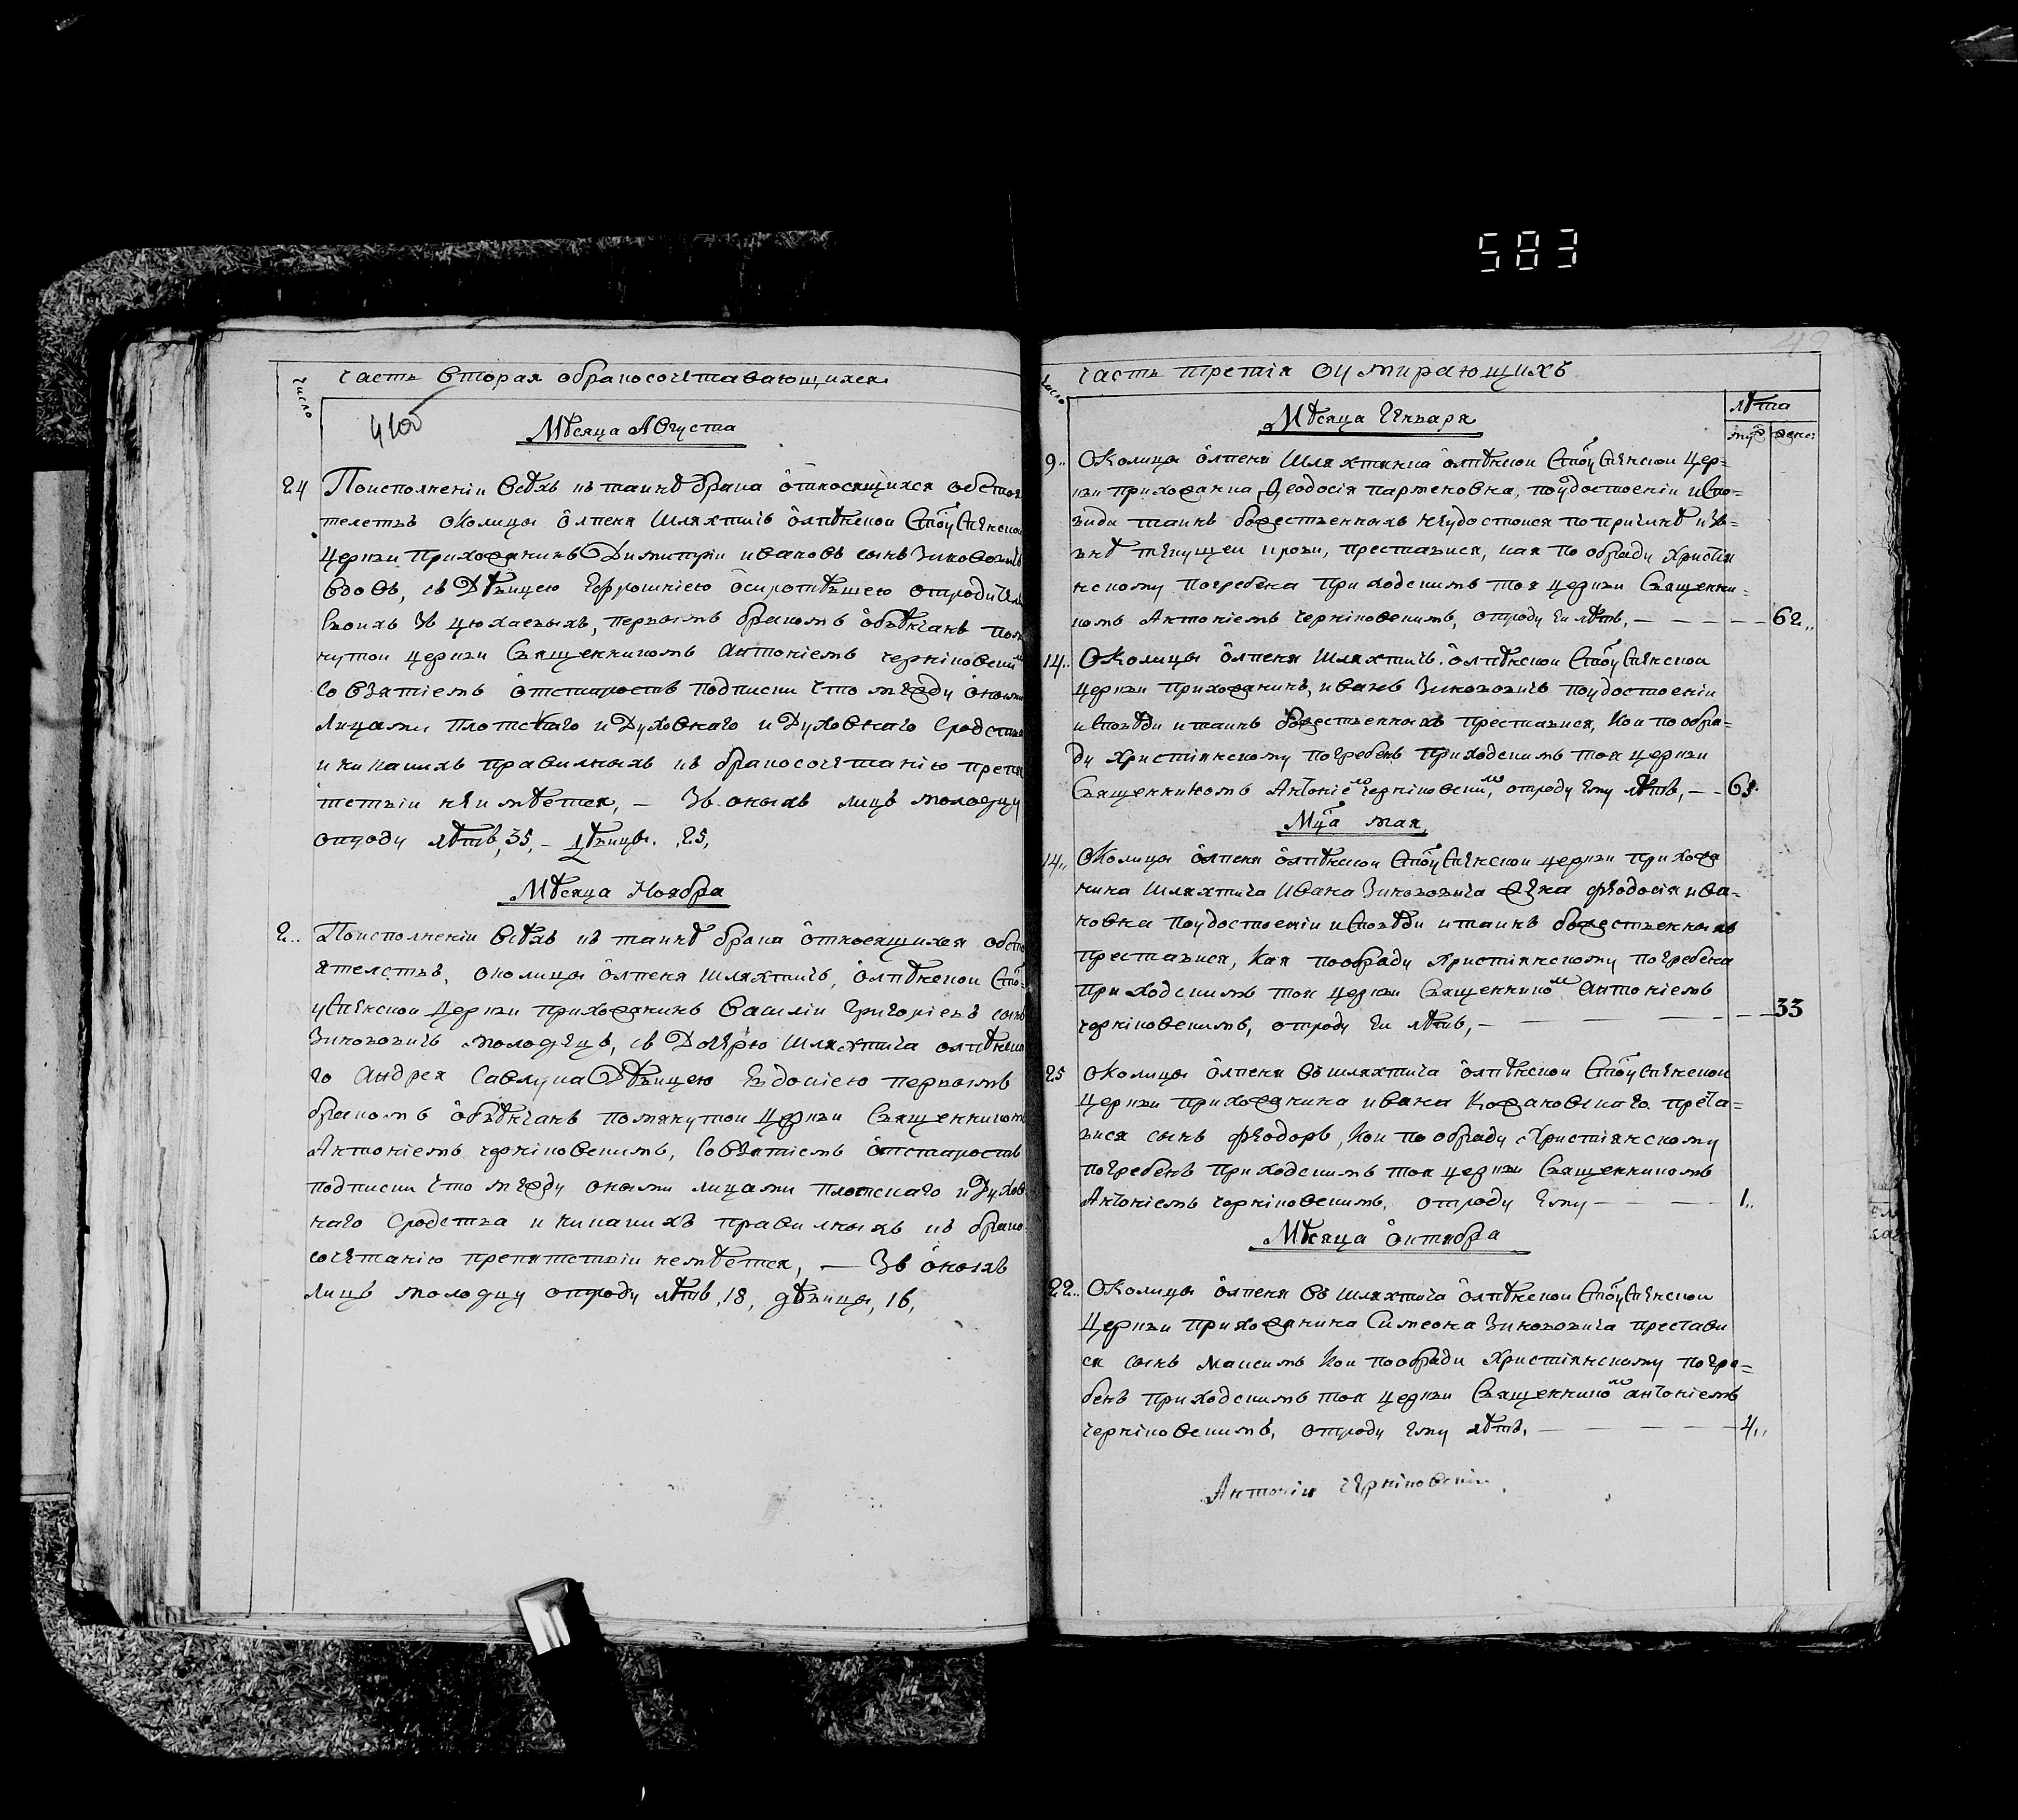 583
Число
часть вторая обракосочѣтавающихся
Мѣсяца Августа
24 Поисполненіи всѣхъ къ таинѣ брака ѻтносящихся обстоя
телствъ околицы ѻлпеня шляхтичъ ѻлпѣнскои Стоуспенскои
церкви прихожанинъ Димитріи ивановъ сынъ Зиновович
вдовъ, съ Дѣвицею Ефросиніею ѻсиротѣвшею отродител
своихъ Зъ цюхаевыхъ, первымъ бракомъ ѻбвѣнчанъ помя
нутои церкви Священникомъ антоніемъ черніковским
со взятіемъ ѻтстаростъ подписки что между ѻными
лицами плотскаго и Духовнаго и Духовнаго Сродства
и никакихъ правилныхъ къ бракосочѣтанію препя
тствіи неимѣется, — Зъ оныхъ лицъ молодцу
отроду лѣтъ, 35, – дѣвицы. ,25,
Мѣсяца Ноября
2.. Поисполненіи всѣхъ къ таинѣ брака ѻтносящихся обсто
ятелствъ, околицы ѻлпеня шляхтичъ, ѻлпѣнскои Сто
успенскои церкви прихожанинъ василіи григоріевъ сынъ
Зиновович молодецъ, съ Дочерю шляхтича олпѣнска
го андрея Савлука Дѣвицею Евдокіею первымъ
бракомъ ѻбвѣнчанъ помянутои церкви Священникомъ
Антоніемъ черніковскимъ, совзятіемъ ѻтстаростъ
подписки что между оными лицами плотскаго и Духов
наго Сродства и никакихъ правилныхъ къ брако
сочѣтанію препятствіи неимѣется, — Зъ ѻныхъ
лицъ молодцу отроду лѣтъ, 18, дѣвицы, 16,
Число
часть третія оумирающихъ
лѣта
муж женс:
Мѣсяца Генваря
9.. Околицы ѻлпеня Шляхтянка ѻлпѣнскои Стоуспенскои цер=
кви прихожанка Феодосія парменовна, поудостоеніи испо=
види таинъ божественныхъ неудостоися по причинѣ изъ=
внѣ текущеи крови, преставися, кая по обряду Христія
нскому погребена приходскимъ тоя церкви Священни=
комъ Антоніемъ черніковскимъ, отроду еи лѣтъ, — 62,,
14.. Околицы ѻлпеня шляхтичъ ѻлпѣнскои Стоуспенскои
церкви прихожанинъ, иванъ Зиновович поудостоеніи
исповѣди итаинъ божественныхъ преставися, кои по обря=
ду христіянскому погребенъ приходскимъ тоя церкви
Священникомъ Антоніемъ черніковским, отроду ему лѣтъ, — 65.
Мца мая,
14.. Околицы ѻлпеня ѻлпѣнскои Стоуспенскои церкви прихожа
нина шляхтича Ивана Зиновович жена феодосія ива=
новна поудостоеніи исповѣди итаинъ божественныхъ
преставися, кая пообряду христіянскому погребена
приходскимъ тоя церкви Священником антоніемъ
черніковскимъ, отроду еи лѣтъ, — 33
25 Околицы ѻлпеня въ шляхтича ѻлпѣнскои Стоуспенскои
церкви прихожанина ивана Кожановскаго преста=
вися сынъ феодоръ, кои по обряду Христіянскому
погребенъ приходскимъ тоя церкви Священникомъ
Антоніемъ черніковскимъ, отроду ему — 1..
Мѣсяца ѻктября
22.. Околицы ѻлпеня въ шляхтича ѻлпѣнскои Стоуспенскои
Церкви прихожанина Симеона Зиновович преставы
ся сынъ Максимъ кои пообряди Христіянскому погре=
бенъ приходскимъ тоя церкви Священником антоніемъ
черніковскимъ, отроду ему лѣтъ, — 4,,
Антоніи Черніковскіи